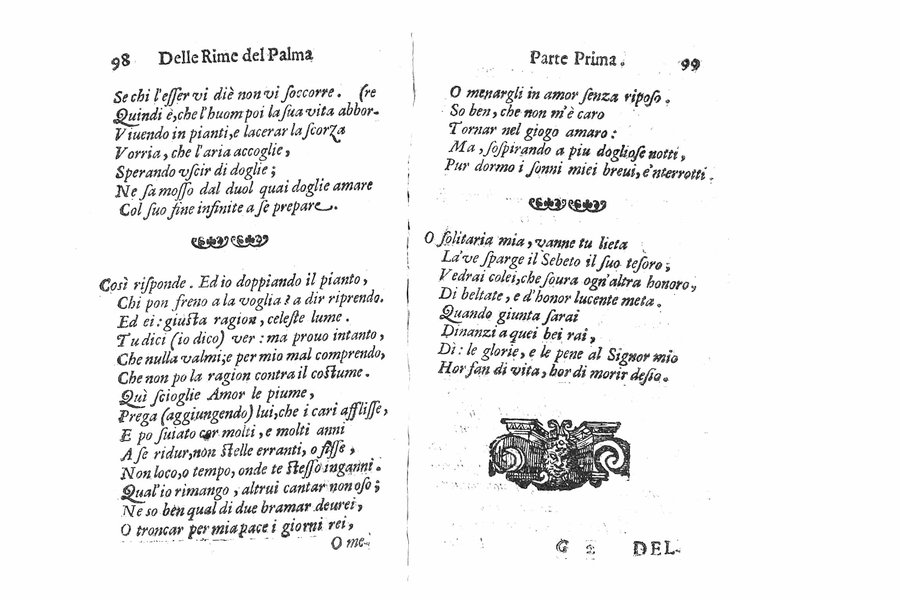 98 Delle Rime del Palma
Se chi l'eſſer vi diè non vi ſoccorre. (re
Quindi è, che l'huom poi la ſua vita abbor-
Viuendo in pianti, e lacerar la ſcorza
Vorria, che l'aria accoglie,
Sperando vſcir di doglie;
Ne ſa moſſo dal duol quai doglie amare
Col ſuo fine infinite a ſe prepare.
Così riſponde. Ed io doppiando il pianto,
Chi pon freno a la voglia? a dir riprendo.
Ed ei: giuſta ragion, celeſte lume.
Tu dici (io dico) ver: ma prouo intanto,
Che nulla valmi; e per mio mal comprendo,
Che non po la ragion contra il coſtume.
Quì ſcioglie Amor le piume,
Prega (aggiungendo) lui, che i cari affliſſe,
E po ſuiato cor molti, e molti anni
A ſe ridur, non ſtelle erranti, o fiſſe,
Non loco, o tempo, onde te ſteſſo inganni.
Qual'io rimango, altrui cantar non oſo;
Ne so ben qual di due bramar deurei,
O troncar per mia pace i giorni rei,
O me-
Parte Prima. 99
O menargli in amor ſenza ripoſo.
So ben, che non m'è caro
Tornar nel giogo amaro:
Ma, ſoſpirando a piu dogliose notti,
Pur dormo i ſonni miei breui, e'nterrotti.
O ſolitaria mia, vanne tu lieta
La've ſparge il Sebeto il ſuo teſoro;
Vedrai colei, che ſoura ogn'altra honoro,
Di beltate, e d'honor lucente meta.
Quando giunta ſarai
Dinanzi a quei bei rai,
Di: le glorie, e le pene al Signor mio
Hor ſan di vita, hor di morir deſio.
G 2 DEL-